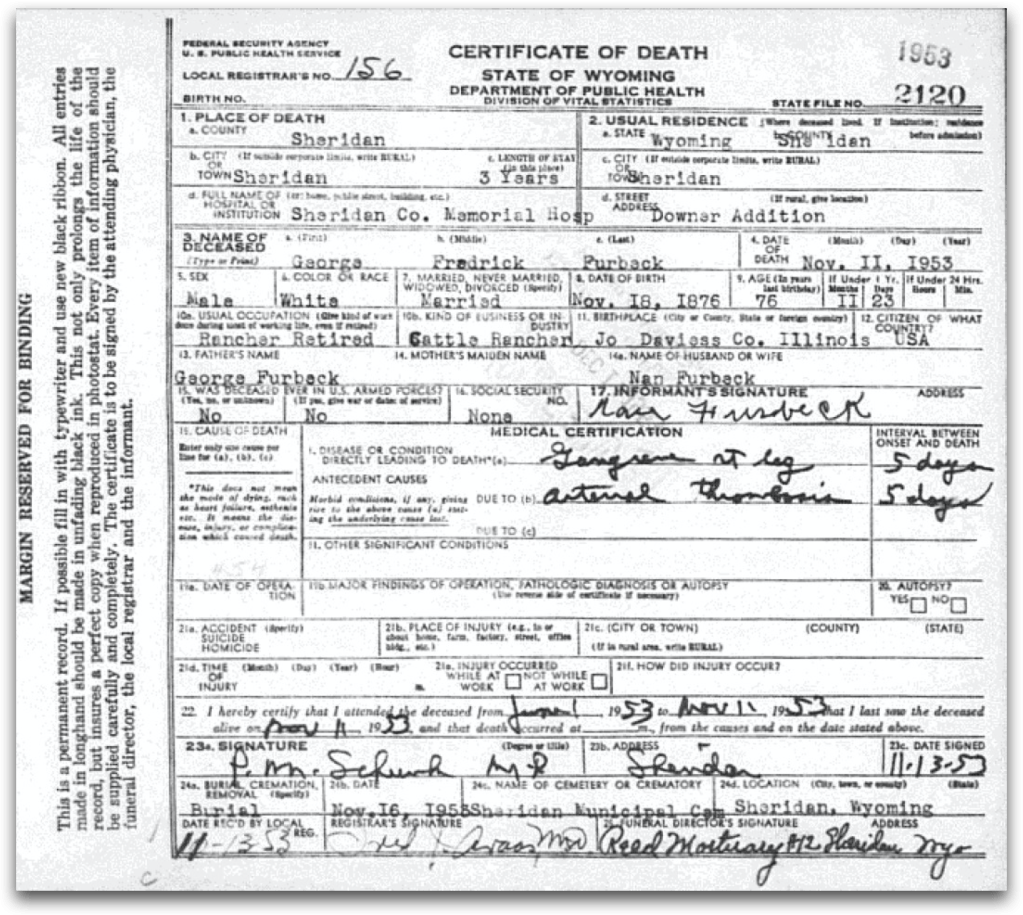 MARGIN RESERVED FOR BINDING
This is a permanent record. If possible fill in with typewriter and use new black ribbon. All entries
made in longhand should be made in unfading black ink. This not only prologs the life of the
record, but insures a perfect copy when reproduced in photostat. Every item of information should
be supplied carefully and completely. The certificate is to be signed by the attending physician, the
funeral director, the local registrar and the informant.
FEDERAL SECURITY AGENCY
U. S. PUBLIC HEALTH SERVICE
LOCAL REGISTRAR'S NO. 156
BIRTH NO.
CERTIFICATE OF DEATH
STATE OF WYOMING
DEPARTMENT OF PUBLIC HEALTH
DIVISION OF VITAL STATISTICS
1953
STATE FILE NO. 2120
1. PLACE OF DEATH
a. COUNTY Sheridan
2. USUAL RESIDENCE (Where deceased lived. If institution; residence before admission)
a. STATE Wyoming b. COUNTY She idan
b. CITY (If outside corporate limits, write RURAL) OR TOWN Sheridan
c. LENGTH OF STAY (in this place) 3 Years
c. CITY (If outside corporate limits, write RURAL) OR TOWN Sheridan
d. FULL NAME OF HOSPITAL OR INSTITUTION (or: home, public street, building, etc.) Sheridan Co. Memorial Hosp
d. STREET ADDRESS (If rural, give location) Downer Addition
3. NAME OF DECEASED (Type or Print)
a. (First) George b. (Middle) Fredrick c. (Last) Furbeck
4. DATE OF DEATH (Month) (Day) (Year) Nov. II, I953
5. SEX Male
6. COLOR OR RACE White
7. MARRIED, NEVER MARRIED, WIDOWED, DIVORCED (Specify) Married
8. DATE OF BIRTH Nov. I8, I876
9. AGE (In years last birthday) 76
If Under 1 Yr. Months II Days 23
If Under 24 Hrs. Hours Min.
10a. USUAL OCCUPATION (Give kind of work done during most of working life, even if retired) Rancher Retired
10b. KIND OF BUSINESS OR INDUSTRY Cattle Rancher
11. BIRTHPLACE (City or County, State or foreign country) Jo Daviess Co. Illinois
12. CITIZEN OF WHAT COUNTRY? USA
13. FATHER'S NAME George Furbeck
14. MOTHER'S MAIDEN NAME
14a. NAME OF HUSBAND OR WIFE Nan Furbeck
15. WAS DECEASED EVER IN U.S. ARMED FORCES? (Yes, no, or unknown) No (If yes, give war or dates of service) No
16. SOCIAL SECURITY NO. None
17. INFORMANT'S SIGNATURE Nan Furbeck ADDRESS
18. CAUSE OF DEATH
Enter only one cause per line for (a), (b), (c)
*This does not mean the mode of dying, such as heart failure, asthenia etc. It means the disease, injury, or complication which caused death.
MEDICAL CERTIFICATION
INTERVAL BETWEEN ONSET AND DEATH
I. DISEASE OR CONDITION DIRECTLY LEADING TO DEATH*(a) Gangrene rt leg 5 days
ANTECEDENT CAUSES
Morbid conditions, if any, giving rise to the above cause (a) stating the underlying cause last.
DUE TO (b) arterial thrombosis 5 days
DUE TO (c)
II. OTHER SIGNIFICANT CONDITIONS
454
19a. DATE OF OPERATION
19b. MAJOR FINDINGS OF OPERATION, PATHOLOGIC DIAGNOSIS OR AUTOPSY
(Use reverse side of certificate if necessary)
20. AUTOPSY?
YES NO
21a. ACCIDENT (Specify) SUICIDE HOMICIDE
21b. PLACE OF INJURY (e.g., in or about home, farm, factory, street, office bldg., etc.)
21c. (CITY OR TOWN) (COUNTY) (STATE)
(If in rural area, write RURAL)
21d. TIME OF INJURY (Month) (Day) (Year) (Hour) m.
21e. INJURY OCCURRED
WHILE AT WORK NOT WHILE AT WORK
21f. HOW DID INJURY OCCUR?
22. I hereby certify that I attended the deceased from June 1 1953 to Nov 11 1953 that I last saw the deceased
alive on Nov 11 1953 and that death occurred at m., from the causes and on the date stated above.
23a. SIGNATURE (Degree or title) P. M. Schunk MD
23b. ADDRESS Sheridan
23c. DATE SIGNED 11-13-53
24a. BURIAL, CREMATION, REMOVAL (Specify) Burial
24b. DATE Nov. I6, I953
24c. NAME OF CEMETERY OR CREMATORY Sheridan Municipal Cem
24d. LOCATION (City, town, or county) (State) Sheridan, Wyoming
DATE REC'D BY LOCAL REG. 11-13-53
REGISTRAR'S SIGNATURE
25. FUNERAL DIRECTOR'S SIGNATURE ADDRESS
Reed Mortuary #12 Sheridan Wyo